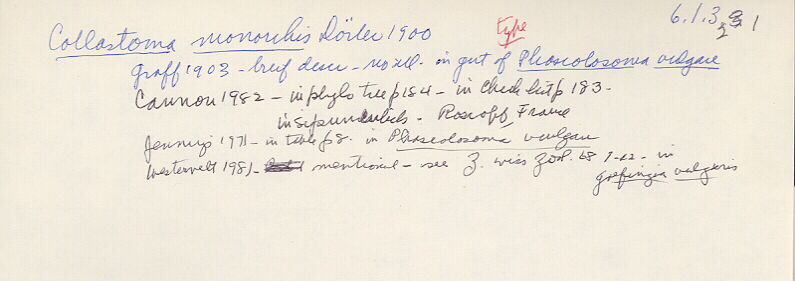 6.1.3.
1
type
Collastoma monorchis Dörler 1900
Graff 1903 - breif descr - no ill. in gut of Phascolosoma vulgare
Cannon 1982 - in phylo tree p184 - in check list p 183 -
in sipunculids - Roscoff, France
Jennings 1971 - in table p8. in Phascolosoma vulgare
Westervelt 1981 - mentioned - see Z. wiss Zool. 68 1-42 - in
golfingia vulgaris